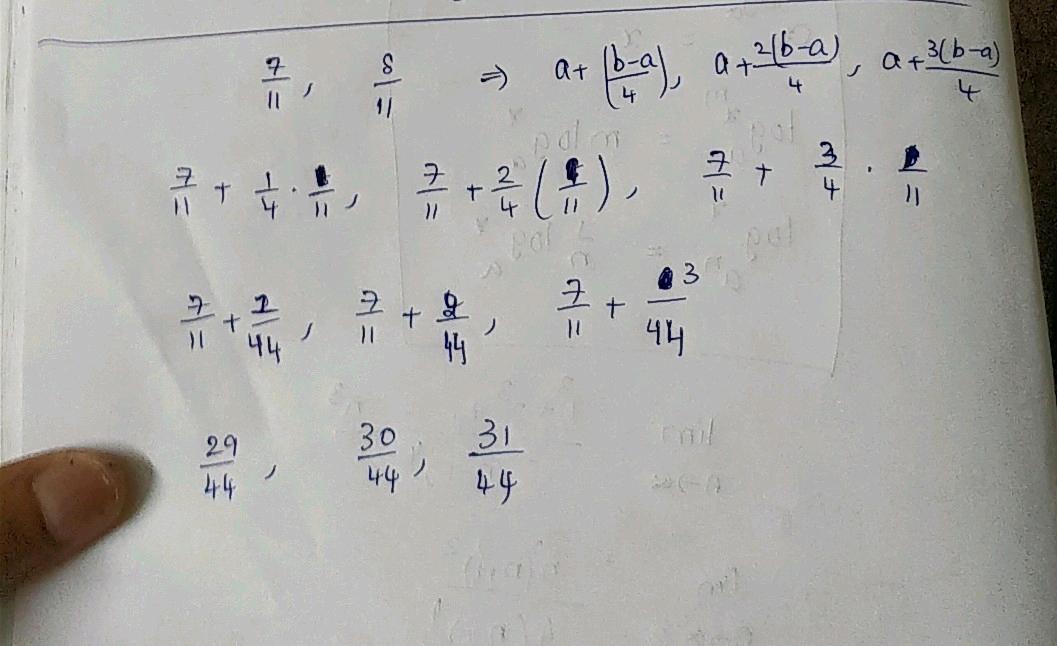 7/11, 8/11 ⇒ a+(b-a/4), a+2(b-a)/4, a+3(b-a)/4
7/11 + 1/4 · 1/11, 7/11 + 2/4 (1/11), 7/11 + 3/4 · 1/11
7/11 + 1/44, 7/11 + 2/44, 7/11 + 3/44
29/44, 30/44, 31/44